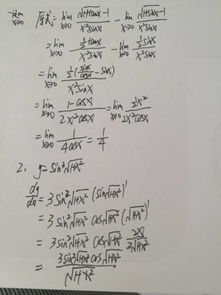 lim x→0 原式 = lim x→0 (√(1+tanx) - 1)/(x²sinx) - lim x→0 (√(1+sinx) - 1)/(x²sinx)
= lim x→0 (½tanx)/(x²sinx) - lim x→0 (½sinx)/(x²sinx)
= lim x→0 ½(sinx/cosx - sinx)/(x²sinx)
= lim x→0 (1-cosx)/(2x²cosx) = lim x→0 ½x²/(2x²cosx)
= lim x→0 1/(4cosx) = 1/4
2. y = sin³√(1+x²)
dy/dx = 3sin²√(1+x²) (sin√(1+x²))'
= 3sin²√(1+x²) cos√(1+x²) (√(1+x²))'
= 3sin²√(1+x²) cos√(1+x²) 2x/(2√(1+x²))